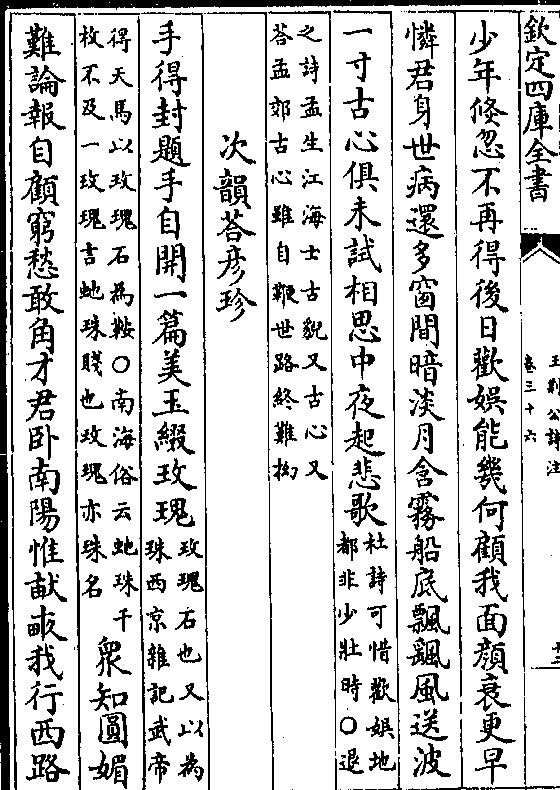 欽定四庫全書
王荊公詩注
卷三十六
少年倐忽不再得後日歡娛能幾何顧我面顔衰更早
憐君身世病還多窗間暗淡月含霧船底飄颻風送波
一寸古心俱未試相思中夜起悲歌
杜詩可惜歡娛地
都非少壯時〇退
之詩孟生江海士古貌又古心又
荅孟郊古心雖自鞭世路終難拗
次韻荅彦珍
手得封題手自開一篇美玉綴玫瑰
玫瑰石也又以為
珠西京雜記武帝
得天馬以玫瑰石為鞍〇南海俗云虵珠千
枚不及一玫瑰言虵珠賤也玫瑰亦珠名
衆知圓媚
難論報自顧窮愁敢角才君卧南陽惟献畝我行西路